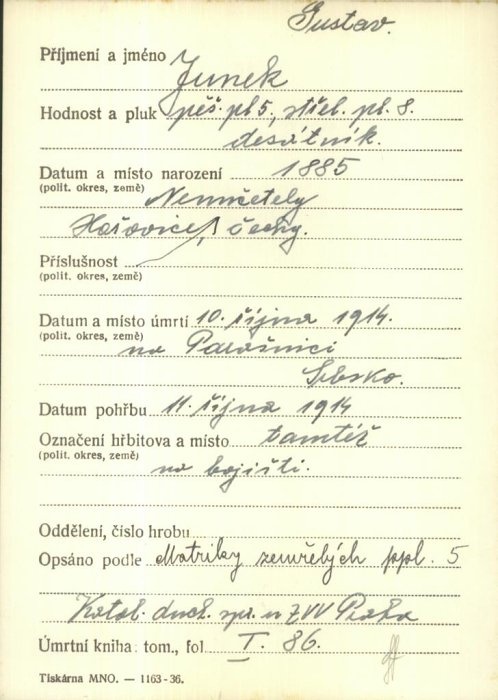 Gustav.
Příjmení a jméno Junek
Hodnost a pluk pěš. pl 5, střel. pl. 8.
desátník.
Datum a místo narození 1885
(polit. okres, země) Neumětely
Hořovice, Čechy.
Příslušnost
(polit. okres, země)
Datum a místo úmrtí 10. října 1914.
(polit. okres, země) na Parašnici
Srbsko.
Datum pohřbu 11. října 1914
Označení hřbitova a místo tamtéž
(polit. okres, země) na bojišti.
Oddělení, číslo hrobu
Opsáno podle Matriky zemřelých ppl. 5
Katol. duch. spr. u ZVV Praha
Úmrtní kniha: tom., fol I. 86.
Tiskárna MNO. — 1163-36.